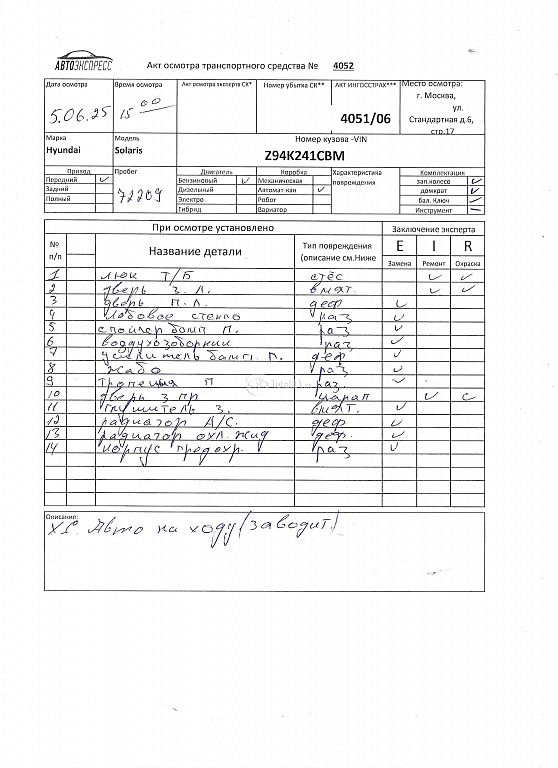 АВТОЭКСПРЕСС
Акт осмотра транспортного средства № 4052
Дата осмотра Время осмотра Акт осмотра эксперта СК* Номер убытка СК** АКТ ИНГОССТРАХ*** Место осмотра:
5.06.25 15 00 4051/06 г. Москва,
ул.
Стандартная д.6,
стр.17
Марка Модель Номер кузова -VIN
Hyundai Solaris Z94K241CBM
Привод Пробег Двигатель Коробка Характеристика повреждения Комплектация
Передний ✓ 72209 Бензиновый ✓ Механическая зап.колесо ✓
Задний Дизельный Автомат-кая ✓ домкрат ✓
Полный Электро Робот бал. Ключ ✓
Гибрид Вариатор Инструмент —
При осмотре установлено Заключение эксперта
№ п/п Название детали Тип повреждения (описание см.Ниже E I R
Замена Ремонт Окраска
1 люк Т/Б стёс ✓ ✓
2 дверь З. Л. вмят. ✓ ✓
3 дверь П.Л. деф ✓
4 Лобовое стекло раз ✓
5 спойлер бамп П. раз ✓
6 воздухозаборник раз ✓
7 усилитель бамп. П. деф ✓
8 Жабо раз ✓
9 П раз. ✓
10 дверь З пр царап ✓ С
11 глушитель З. вмят. ✓
12 радиатор А/С. деф ✓
13 радиатор охл. жид деф. ✓
14 корпус предохр. раз ✓
Описание:
Авто на ходу (заводит.)